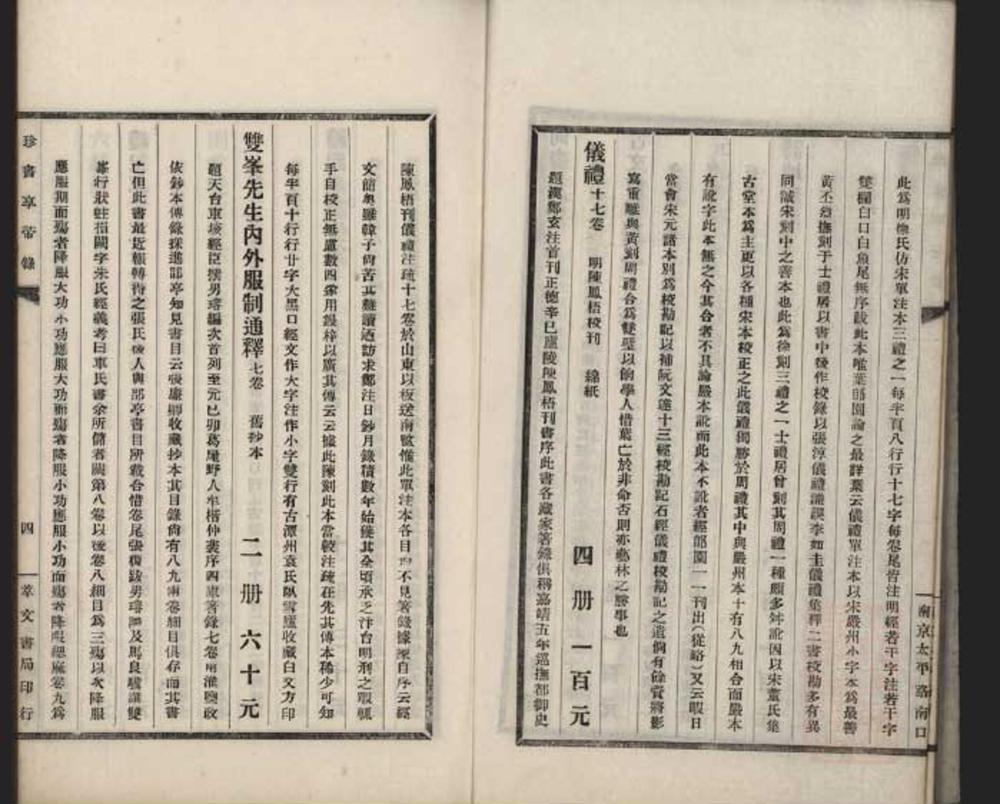 南京太平路南口
此為明徐氏仿宋單注本三禮之一每半頁八行行十七字每卷尾皆注明經若干字注若干字
雙欄白口白魚尾無序跋此本唯葉郋園論之最詳葉云儀禮單注本以宋嚴州小字本為最善
黃丕烈撫刻于士禮居以書中後作校錄以張淳儀禮識誤李如圭儀禮集釋二書校勘多有異
同誠宋刻中之善本也此為徐刻三禮之一士禮居曾刻其周禮一種頗多舛訛因以宋董氏集
古堂本為主更以各種宋本校正之此儀禮獨勝於周禮其中與嚴州本十有八九相合而嚴本
有訛字此本無之今其合者不具論嚴本訛而此本不訛者經郋園一一刊出(從略)又云暇日
當會宋元諸本別為校勘記以補阮文達十三經校勘記石經儀禮校勘記之遺倘有餘資將影
寫重雕與黃刻周禮合為雙璧以餉學人惜葉亡於非命否則亦藝林之勝事也
儀禮十七卷 明陳鳳梧校刊 綿紙 四册一百元
題漢鄭玄注首刊正德辛巳廬陵陳鳳梧刊書序此書各藏家著錄俱稱嘉靖五年巡撫都御史
陳鳳梧刊儀禮注疏十七卷於山東以板送南監惟此單注本各目均不見著錄據陳自序云經
文簡奧雖韓子尚苦其難讀迺訪求鄭注日鈔月錄積數年始僅其全頃承之汴台明刑之暇輒
手自校正無慮數四爰用鋟梓以廣其傳云云據此陳刻此本當較注疏在先其傳本稀少可知
每半頁十行行廿字大黑口經文作大字注作小字雙行有古潭州袁氏臥雪廬收藏白文方印
雙峯先生內外服制通釋七卷 舊抄本 二册六十元
題天台車垓經臣撰男瑢編次首列至元己卯葛魔野人牟楷仲裴序四庫著錄七卷兩淮鹽政
依鈔本傳錄採進郘亭知見書目云張廉卿收藏抄本其目錄尚有八九兩卷細目俱存而其書
亡但此書最近輾轉得之張氏後人與郘亭書目所載合惜卷尾張復跋男瑢識及馬良驥識雙
峯行狀註指闕字朱氏經義考曰車氏書余所儲者闕第八卷以後卷八細目為三殤以次降服
應服期而殤者降服大功小功應服大功而殤者降服小功應服小功而殤者降服緦麻卷九為
珍書享帚錄
四
萃文書局印行